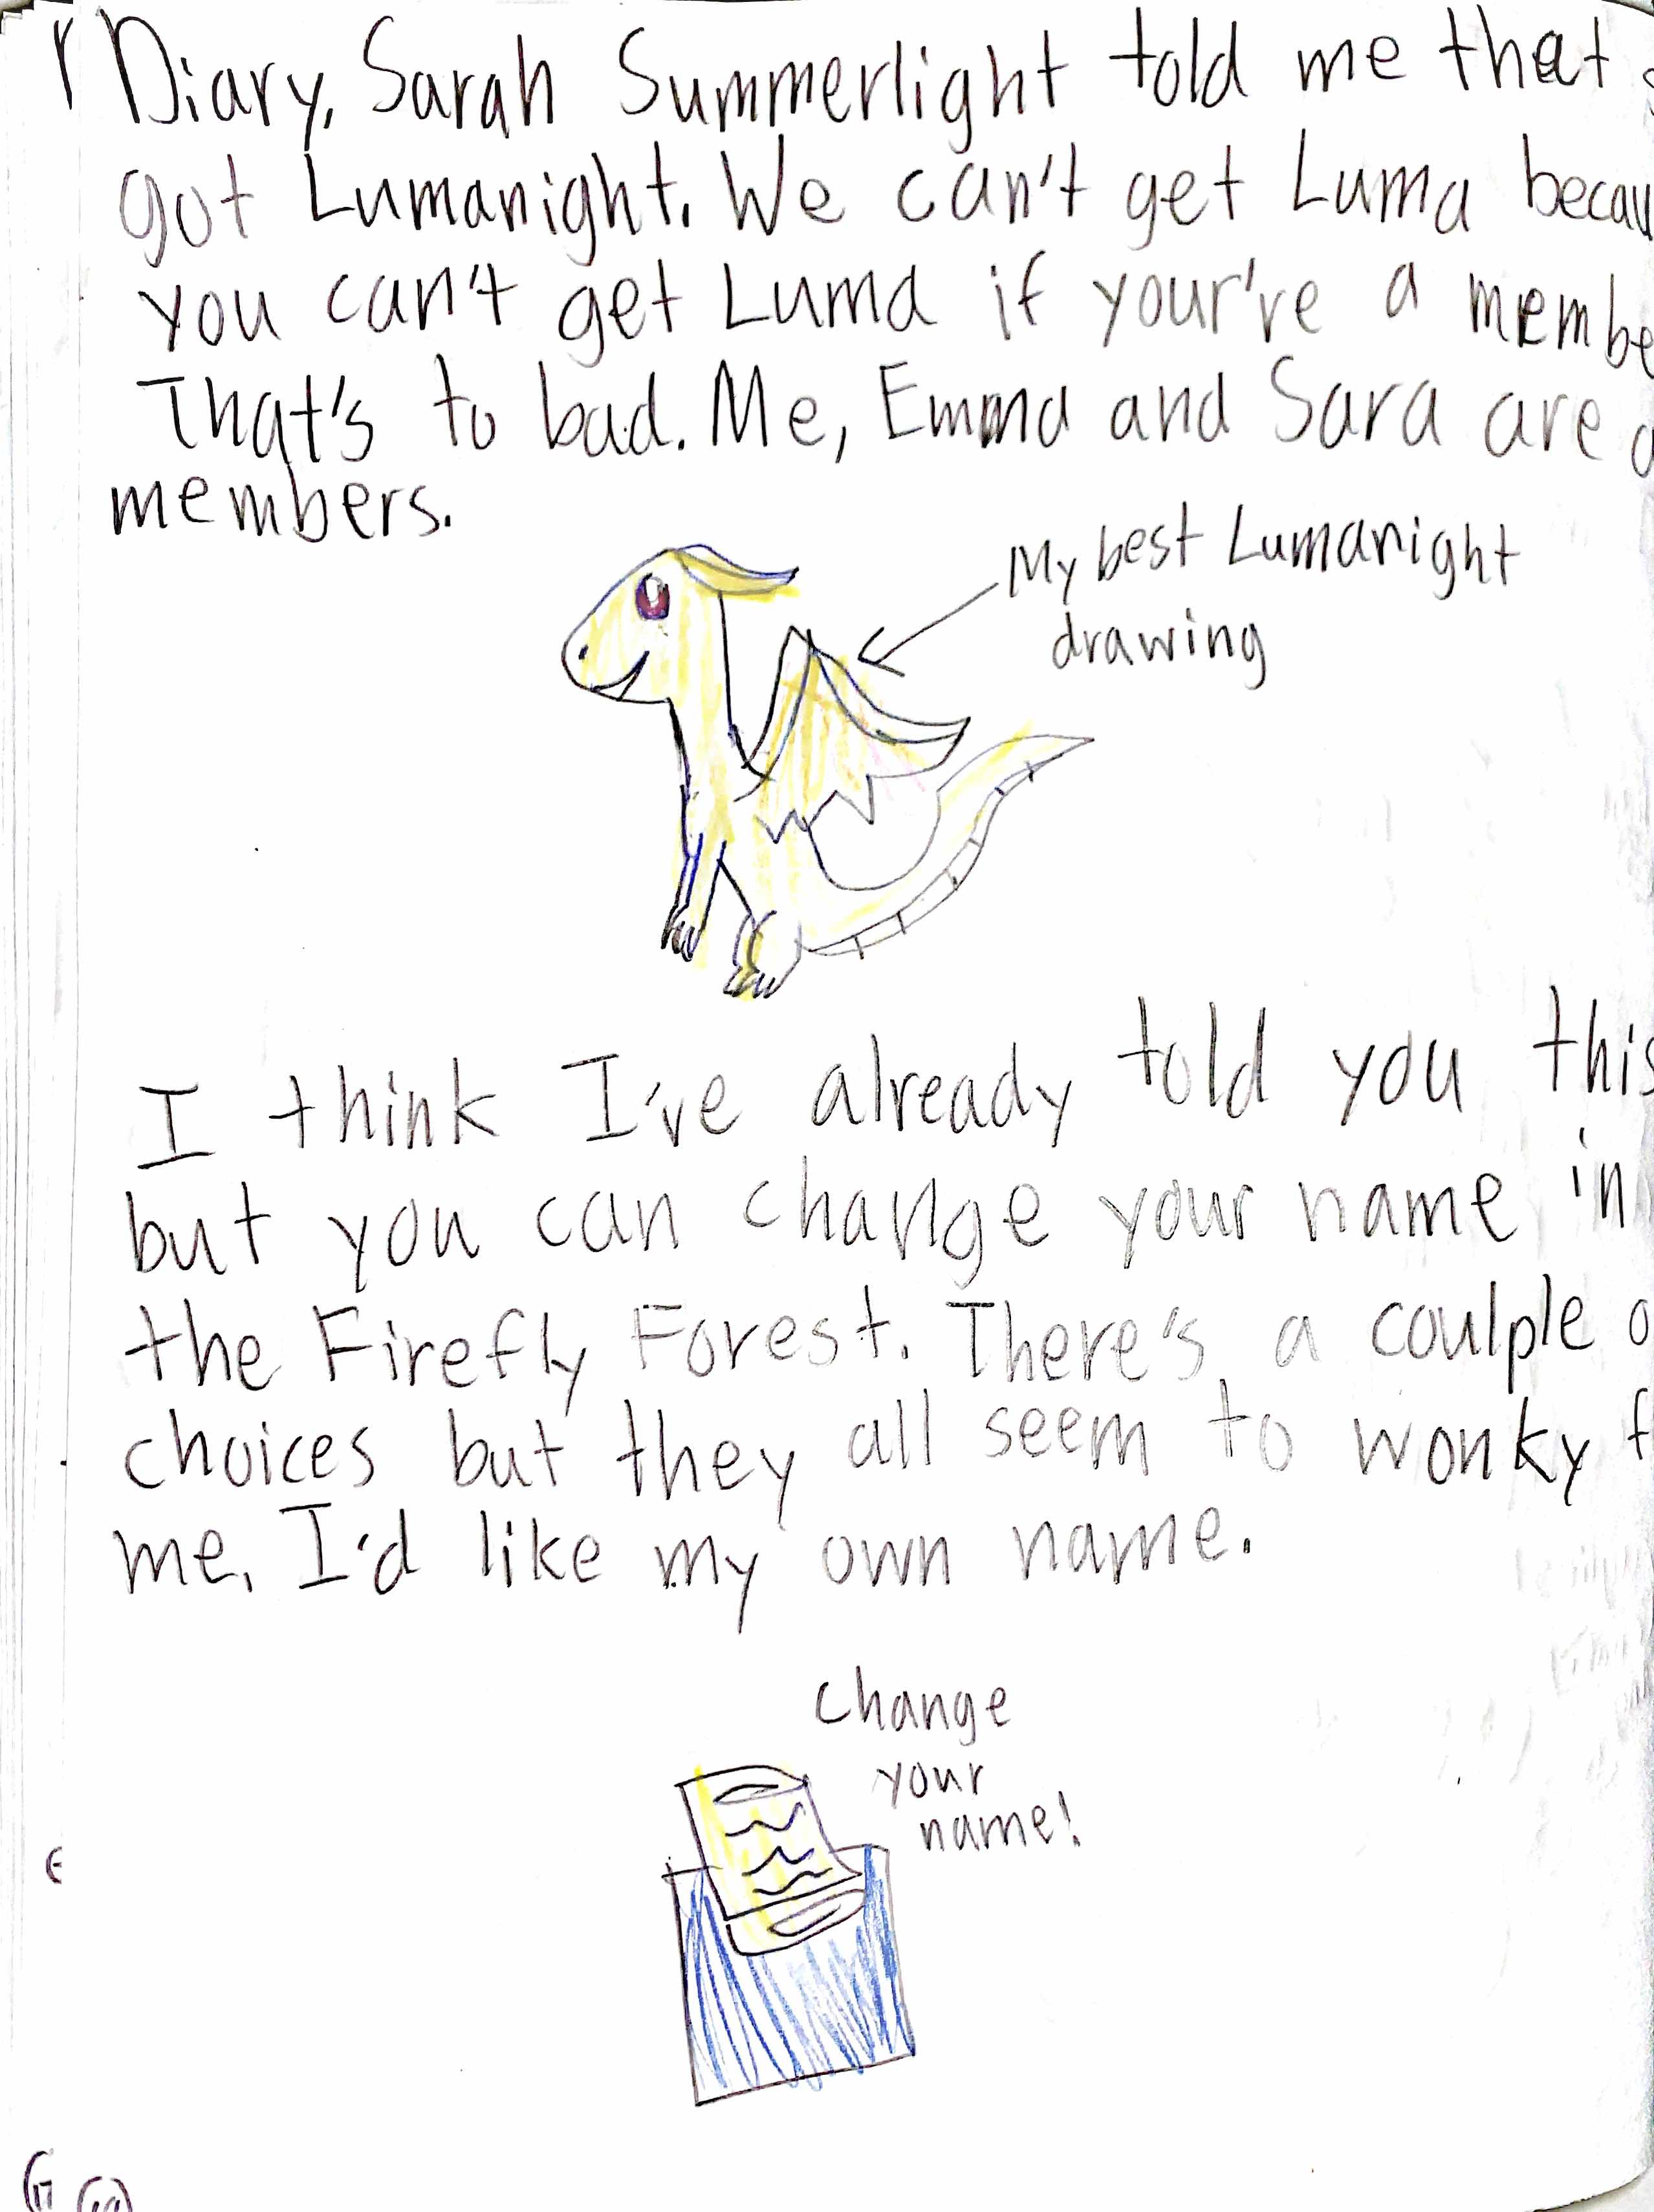 Diary, Sarah Summerlight told me that
got Lumanight. We can't get Luma becau
you can't get Luma if your're a membe
That's to bad. Me, Emma and Sara are a
members.
My best Lumanight
drawing
I think I've already told you this
but you can change your name in
the Firefly Forest. There's a coulple o
choices but they all seem to wonky f
me. I'd like my own name.
Change
your
name!